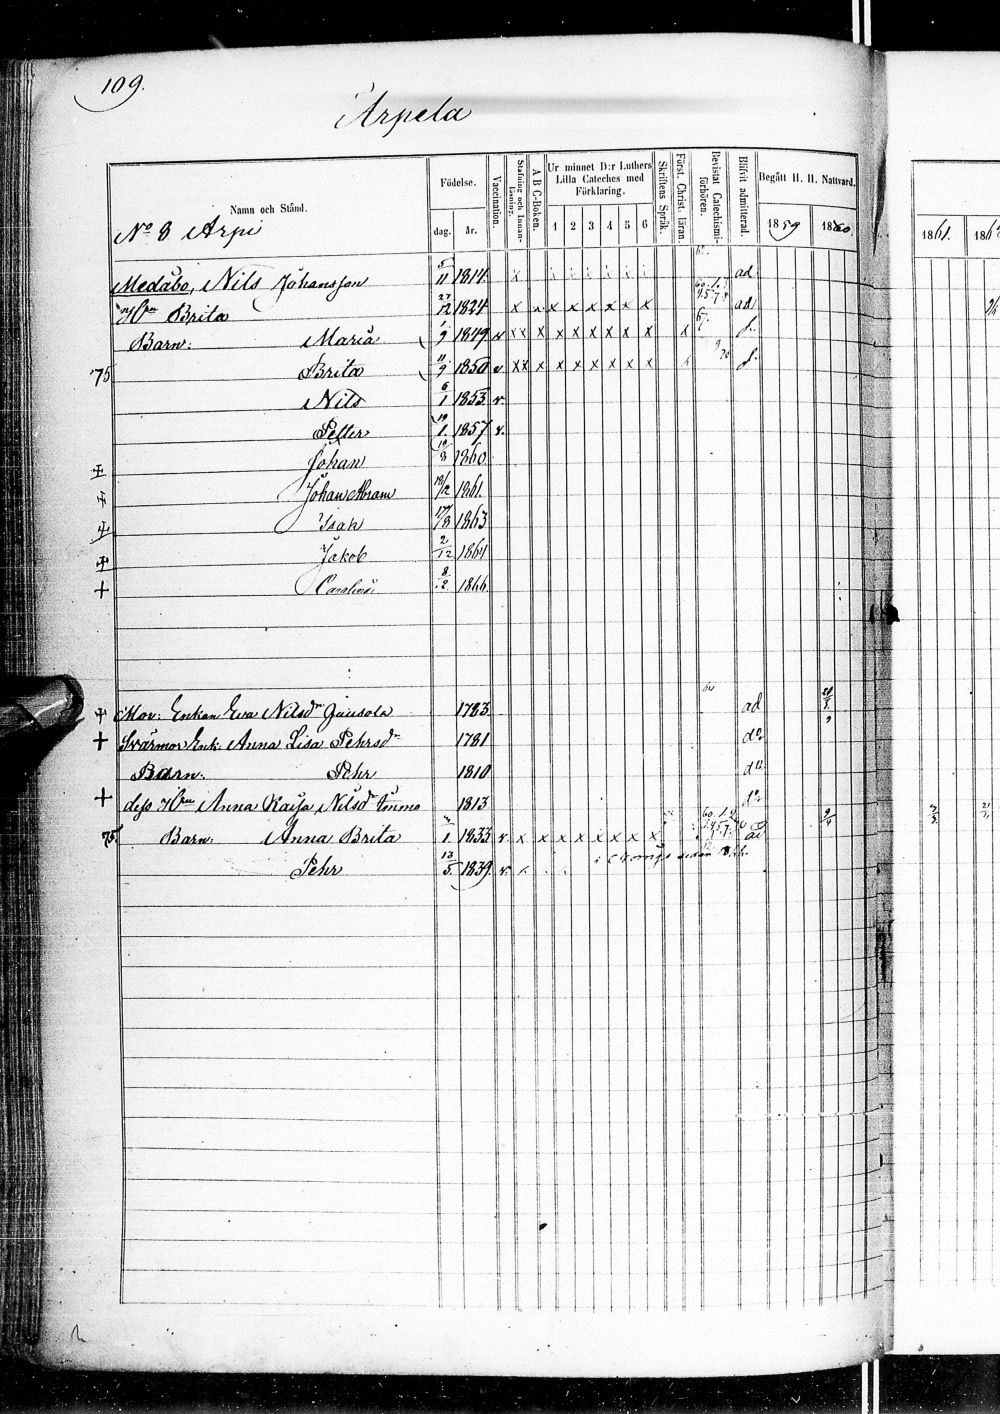 109.
Arpela
Namn och Stånd.
Födelse.
dag. år.
Vaccination.
Stafning och Innanläsning.
A B C-Boken.
Ur minnet D:r Luthers Lilla Cateches med Förklaring.
1 2 3 4 5 6
Skriftens Språk.
Först. Christ. läran.
Bevistat Catechismiförhören.
Blifvit admitterad.
Begått H. H. Nattvard.
1859 1860. 1861.
No 8 Arpi
Medåbo, Nils Johansson 5/11 1814. x ad
Brita 27/12 1824 x x x x x x x x x ad
Barn: Maria 1/9 1849 v x x x x x x x x x x
75 Brita 11/9 1850 v x x x x x x x x x
Nils 6/1 1853 v.
Petter 19/1. 1857 v.
+ Johan 19/8 1860
+ Johan Abram 18/12 1861.
+ Isak 17/8 1863
+ Jakob 2/12 1864
+ Carolina 8/2. 1866
+ Mor: Enkan Eva Nilsdr 1783 ad
+ Svärmor Enk. Anna Lisa Pehrsdr 1781 do
Barn: Pehr 1810 do
+ dess Hu Anna Kaisa Nilsdr 1813 do
75. Barn: Anna Brita 1. 1833 v. x x x x x x x x x ad
Pehr 13/5. 1839. v. sedan